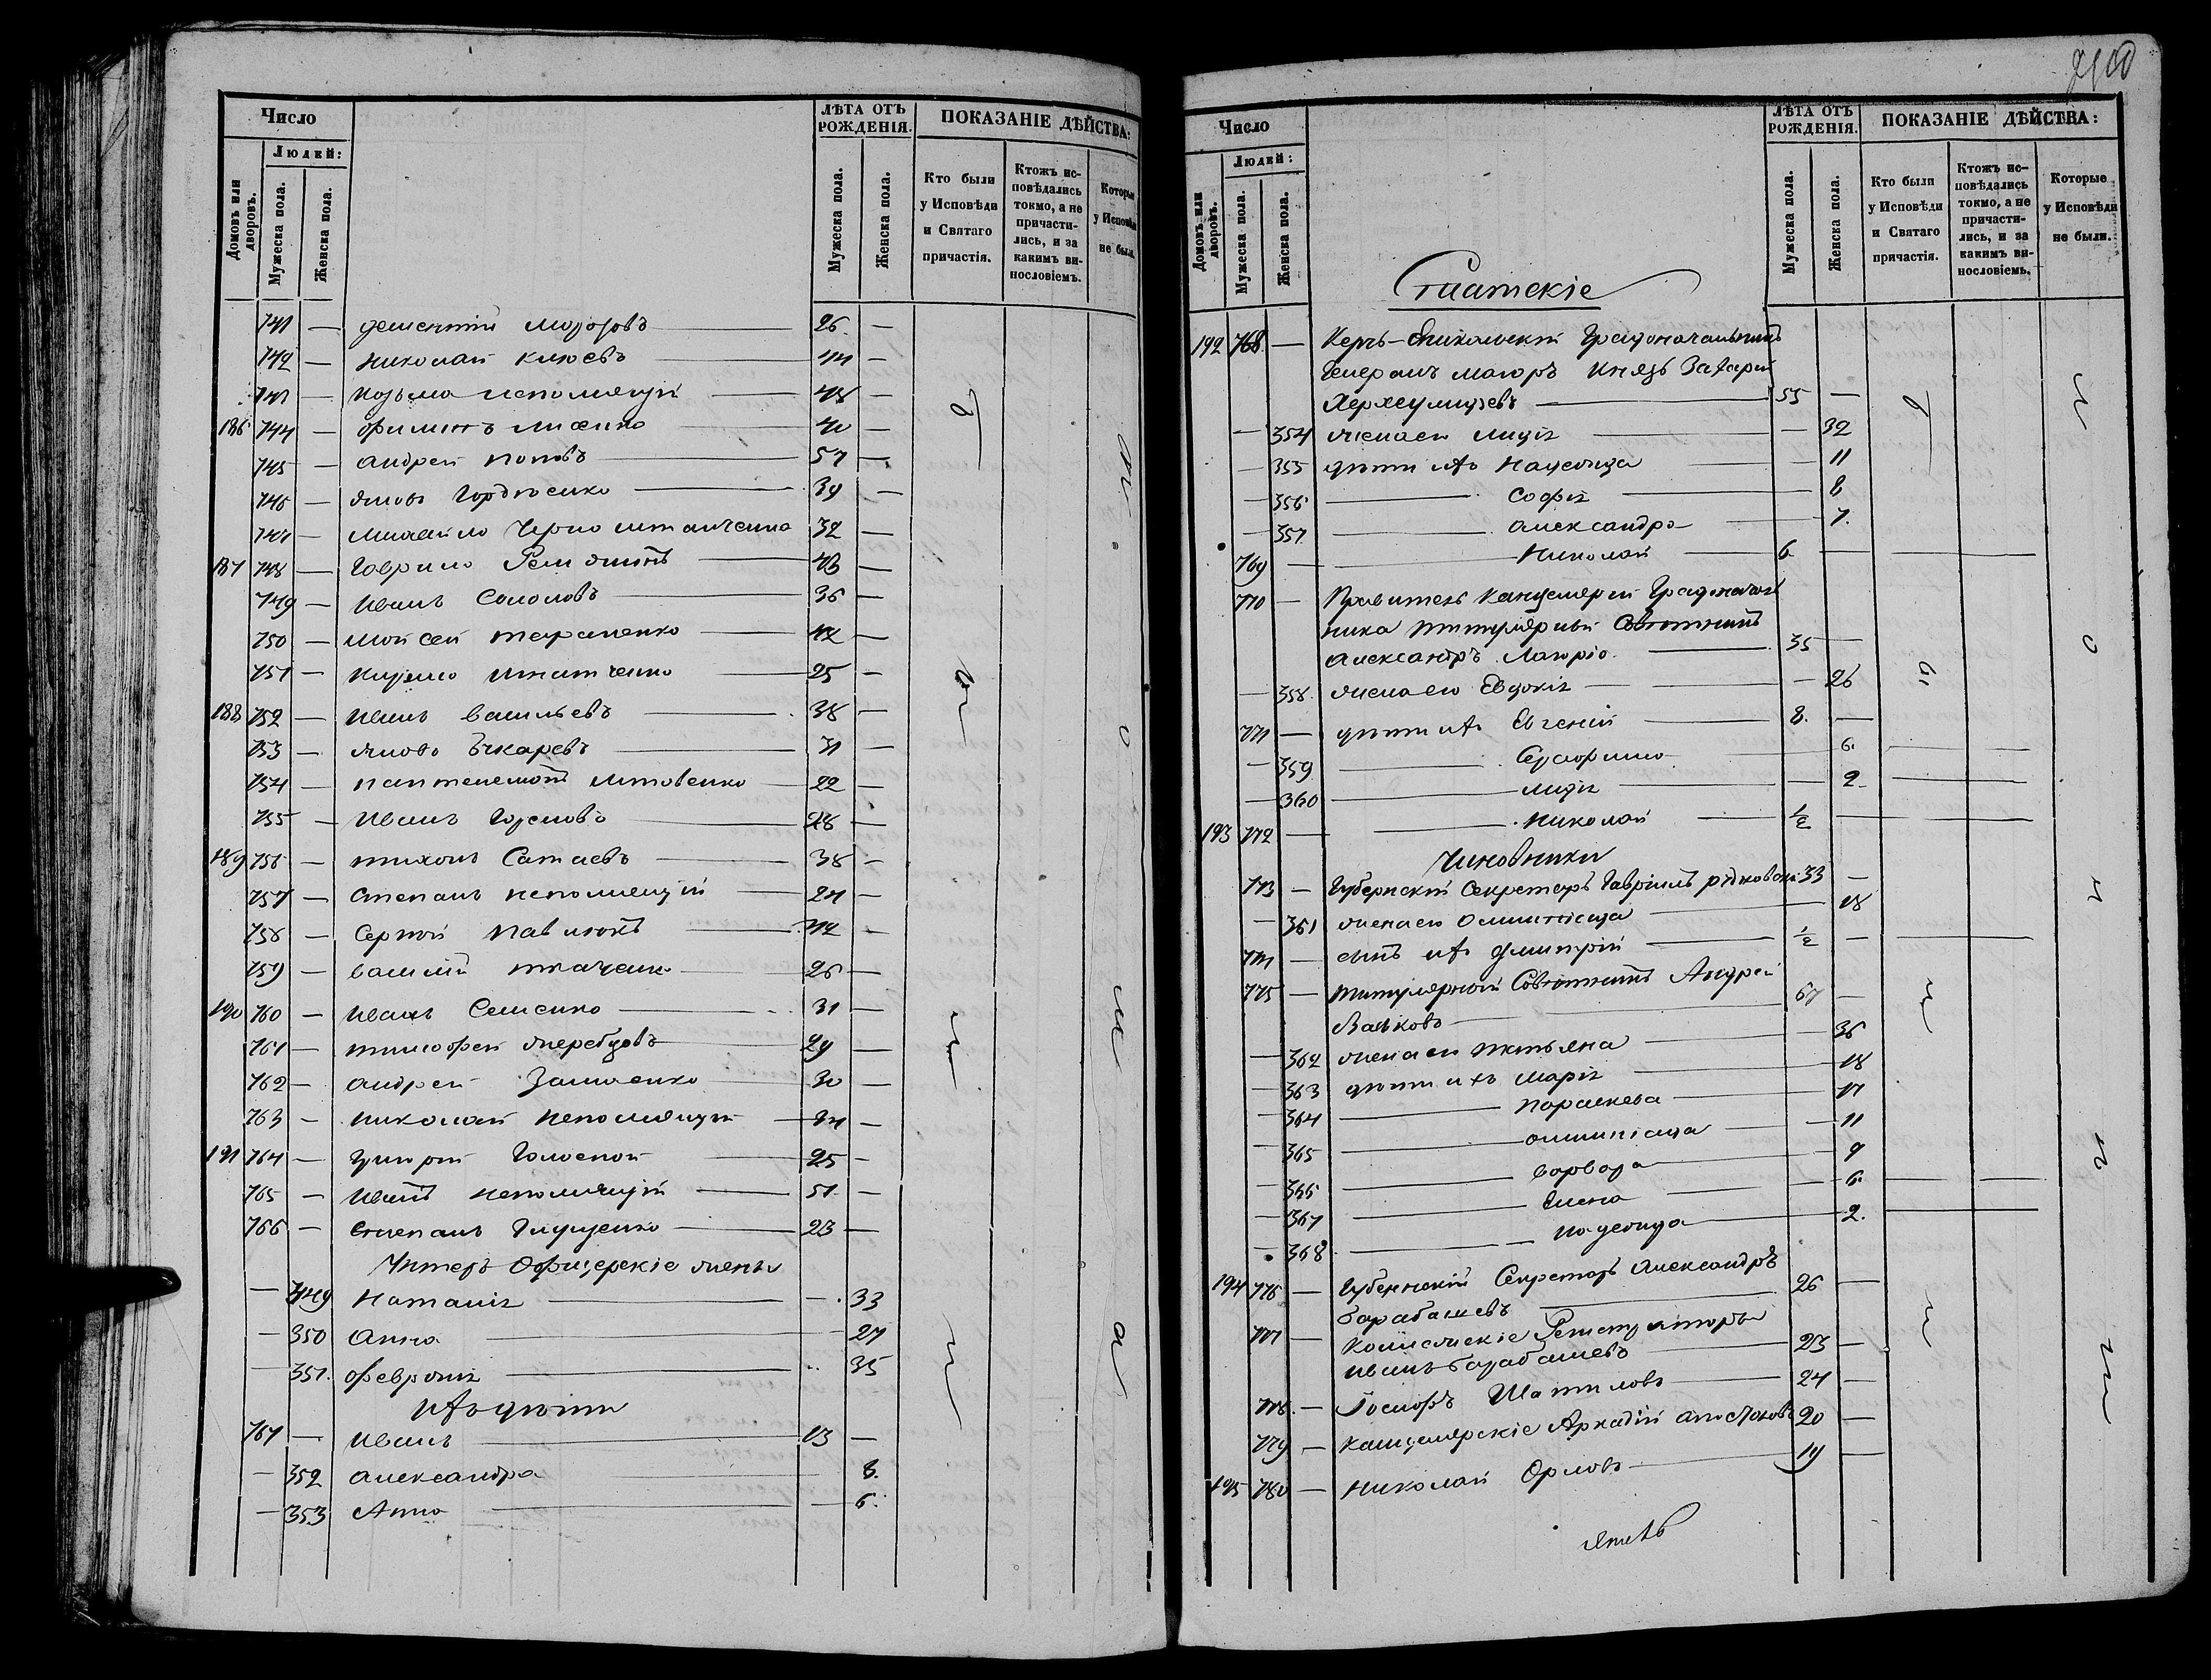 Число
Людей:
Домовъ или дворовъ.
Мужеска пола.
Женска пола.
ЛѢТА ОТЪ РОЖДЕНІЯ.
Мужеска пола.
Женска пола.
ПОКАЗАНІЕ ДѢЙСТВА:
Кто были у Исповѣди и Святаго причастія.
Ктожъ исповѣдались токмо, а не причастились, и за какимъ винословіемъ.
Которые у Исповѣди не были.
741 — Дементій Морозовъ — 26 —
742 — Николай Клюевъ — 44 —
Козьма Непомнящій — 48 —
186 744 — Филипъ Лисенко — 40 —
745 — Андрей Поповъ — 57 —
746 — Яковъ Гордѣенко — 39 —
Михайло — 32 —
187 748 — Гаврило —
749 — Иванъ Соколовъ — 36 —
750 — Мойсей Тараненко — 42 —
751 — Кирило Игнатченко — 25 —
188 752 — Иванъ Васильевъ — 38 —
753 — Яковъ — 31 —
754 — Пантелемонъ Литовенко — 22 —
755 — Иванъ —
189 756 — Тихонъ Сатаевъ — 38 —
757 — Степанъ Непомнящій — 24 —
758 — Сергей Павлюкъ — 42 —
759 — Василій Ткаченко — 26 —
190 760 — Иванъ Семенко — 31 —
761 — Тимофей Жеребцовъ — 29 —
762 — Андрей — 30 —
763 — Николай Непомнящій —
191 764 — Григорій Голосной — 25 —
765 — Иванъ Непомнящій — 51 —
766 — Степанъ Глущенко — 23 —
Унтеръ-Офицерскіе жены
— 349 Наталія — 33
— 350 Анна — 27
— 351. Февронія — 35
Ихъ дѣти
767 — Иванъ — 13 —
— 352 Александра — 8.
— 353 Анна — 6.
Число
Людей:
Домовъ или дворовъ.
Мужеска пола.
Женска пола.
ЛѢТА ОТЪ РОЖДЕНІЯ.
Мужеска пола.
Женска пола.
ПОКАЗАНІЕ ДѢЙСТВА:
Кто были у Исповѣди и Святаго причастія.
Ктожъ исповѣдались токмо, а не причастились, и за какимъ винословіемъ.
Которые у Исповѣди не были.
Статскіе
192 768 — Керчь-Еникольскій Градоначальникъ
Генералъ Маіоръ Князь Захарій
Херхеулидзевъ — 55 —
— 354 жена его Лидія — 32
— 355 дѣти ихъ Надежда — 11
— 356 — Софія — 8
— 357 — Александра — 7.
769 — Николай — 6 —
770 — Правитель Канцеляріи Градоначаль
ника Титулярный Совѣтникъ
Александръ Лагоріо — 35 —
— 358. жена его Евдокія — 26
771 — дѣти ихъ Евгеній — 8. —
— 359 — Серафима — 6.
— 360 — Лидія — 2
193 772 — Николай — ½ —
Чиновники
773 — Губернскій Секретарь Гавріилъ — 33 —
— 361 жена его Олимпіада — 18
774 — сынъ ихъ Дмитрій — ½ —
775 — Титулярный Совѣтникъ Андрей
— 67 —
— 362 жена его Татьяна — 36
— 363 дѣти ихъ Марія — 18
— 364 — Параскева — 17
— 365 — Олимпіада — 11
— 366 — Варвара — 9
— 367 — Елена — 6.
— 368 — Надежда — 2.
194 776 — Губернскій Секретарь Александръ
Барабашевъ — 26 —
777 — Колежскіе Регистраторы
Иванъ Барабашевъ — 23 —
778. — Іосифъ Шатиловъ — 24 —
779 — Канцелярскіе Аркадій Апостоловъ 20 —
195 780 — Николай Орловъ — 19 —